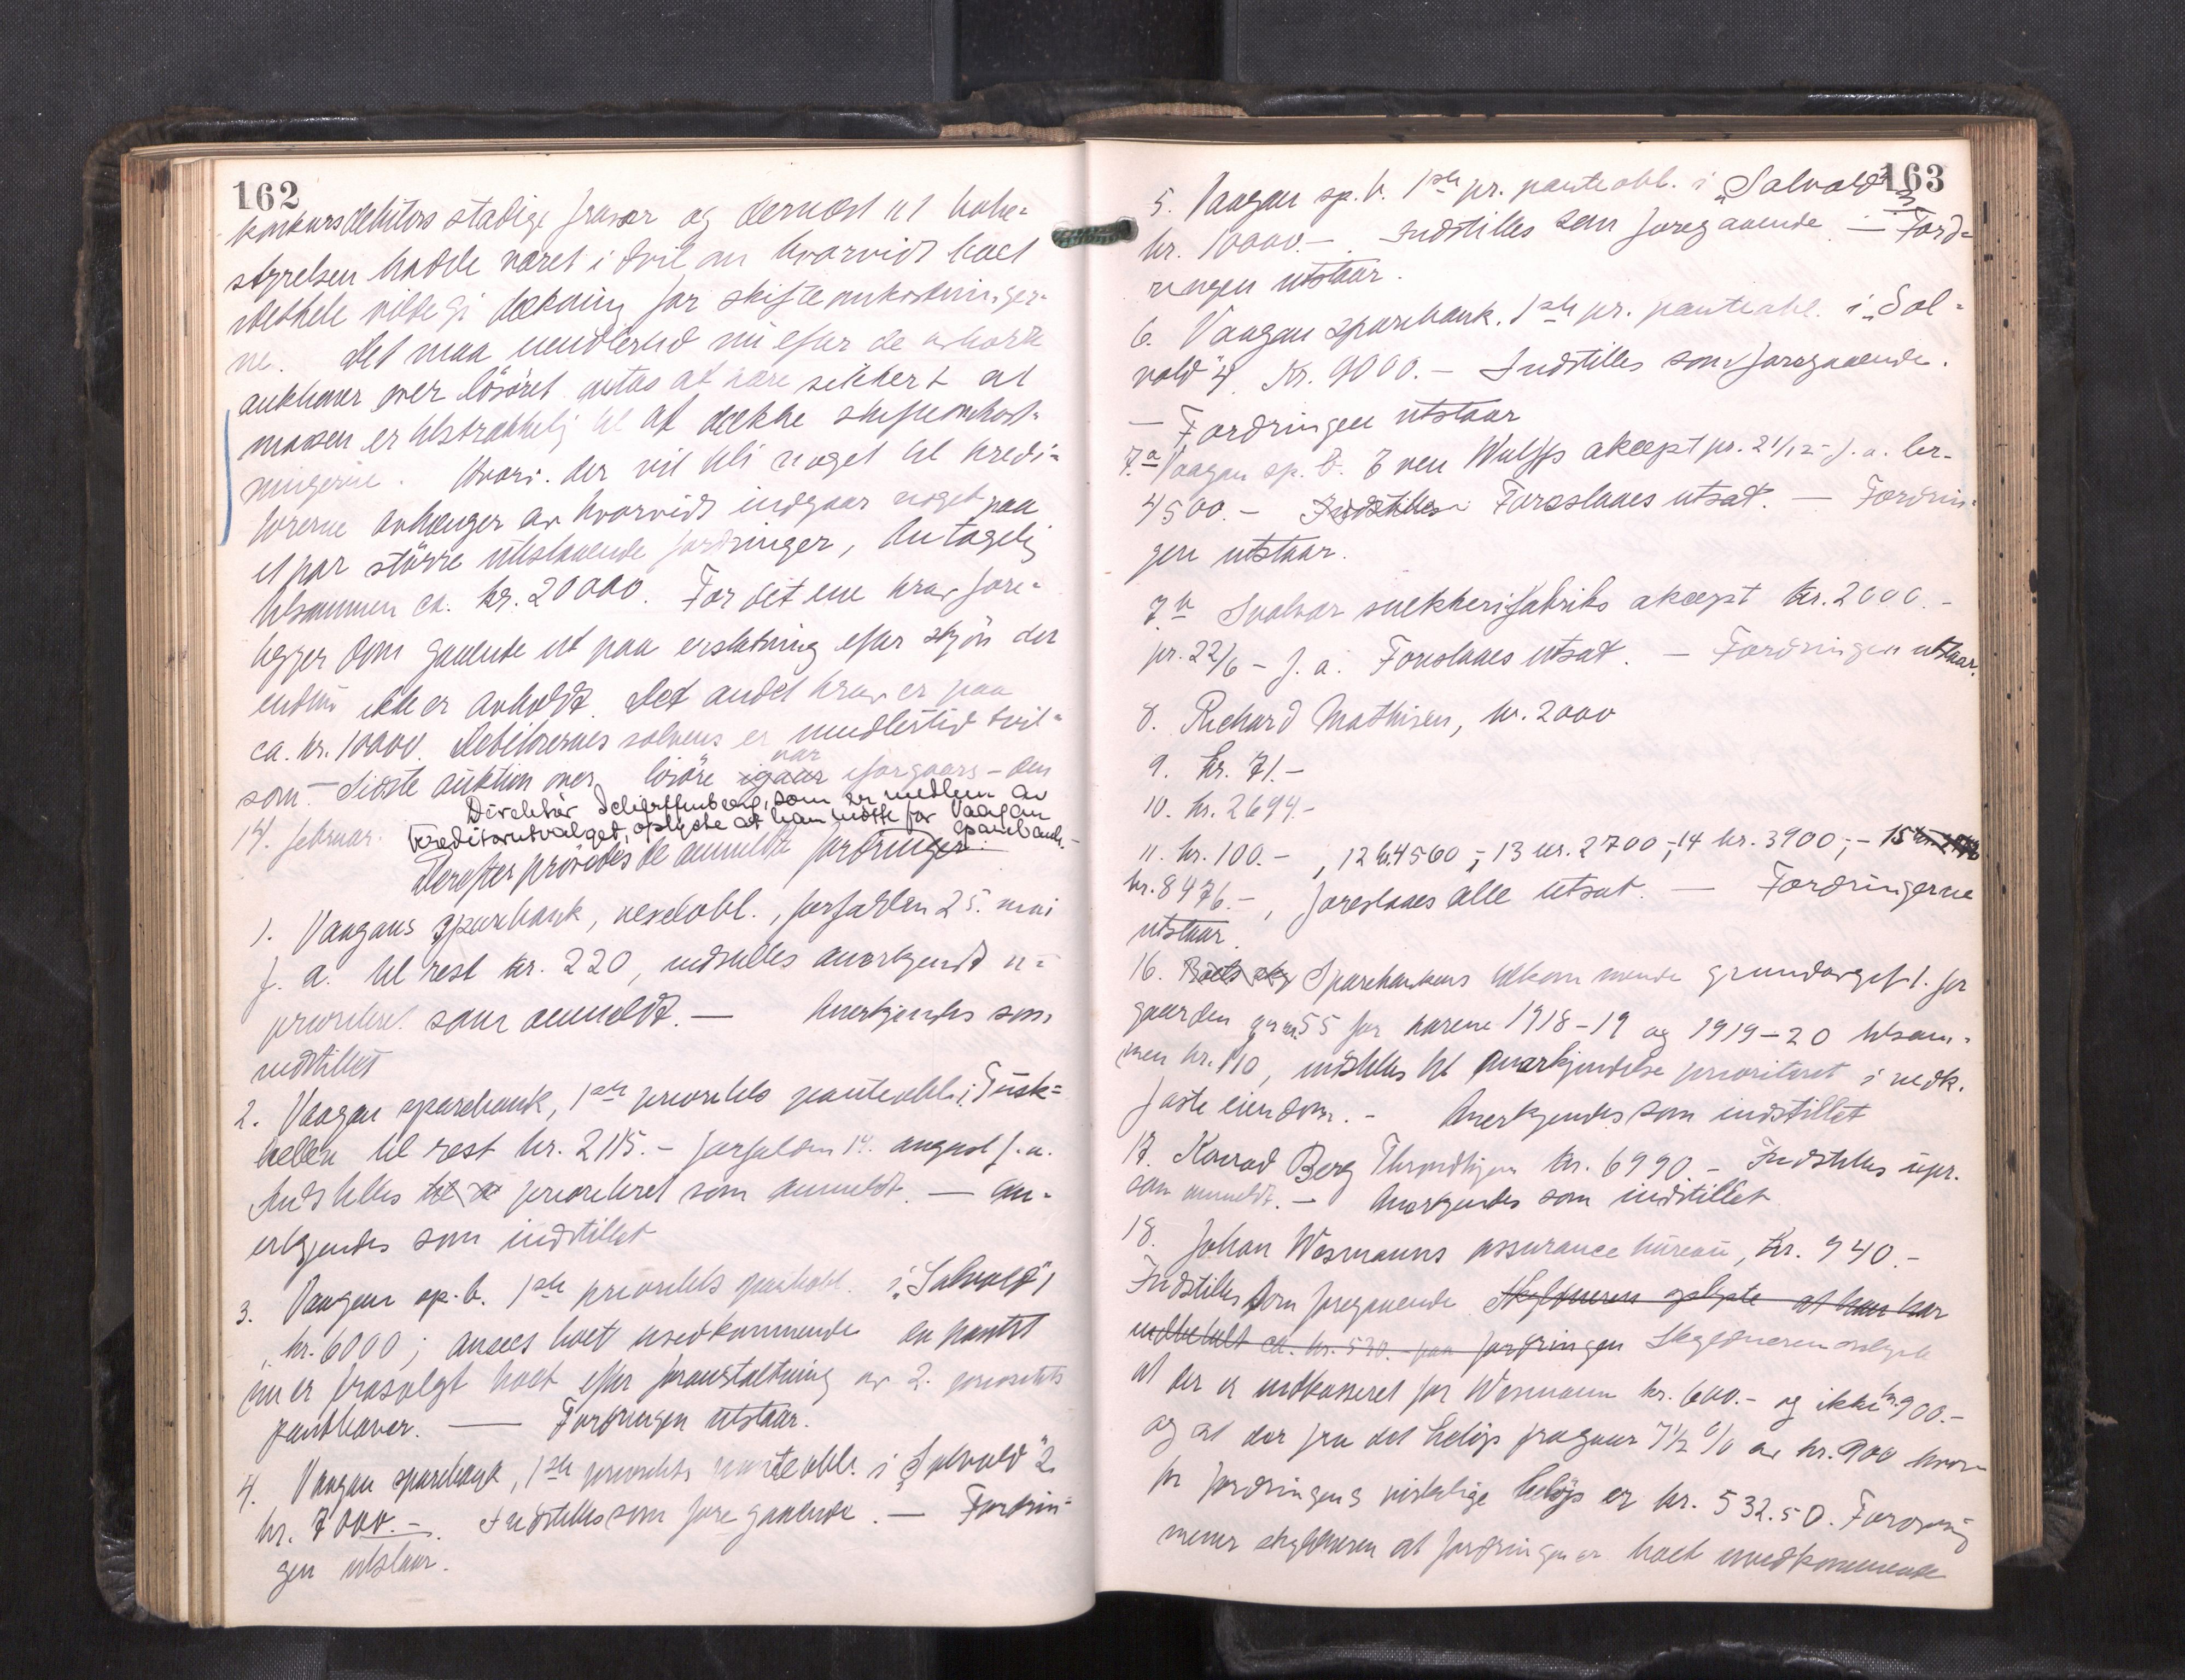 162
konkursdebitors stadige fravær og dernæst at bobe-
styrelsen hadde været i tvil om hvorvidt boet
idethele vilde gi dækning for skifteomkostninger-
ne. Det maa imidlertid nu efter de avholdte
auktioner over lösöret antas at være sikkert at
massen er tilstrækkelig til at dække skifteomkost-
ningerne. Hvorv. der vil bli noget til kredi-
torerne avhænger av hvorvidt indgaar noget paa
et par större utestaaende fordringer, antagelig
tilsammen ca. kr. 20000. For det ene krav fore-
ligger dom gaaende ut paa erstatning efter skjön der
endnu ikke er avholdt. Det andet krav er paa
ca. kr. 10000. Debitorernes solvens er imidlertid tvil-
som. – Sidste auktion over lösöre igaar var iforgaars – den
14. februar. Direktör Scheffenberg, som er medlem av
kreditorutvalget, oplyste at han mötte for Vaagan
sparebank. –
Derefter prövedes de anmeldte fordringer:
1. Vaagans sparebank, vexelobl., forfalden 25. mai
f. a. til rest kr. 220, indstilles anerkjendt u-
prioritert som anmeldt. — Anerkjendes som
indstillet
2. Vaagan sparebank, 1ste prioritets panteobl. i Tusk-
hellen til rest kr. 2115.- forfalden 14. august f. a.
Indstilles til a prioritert som anmeldt. — An-
erkjendes som indstillet
3. Vaagan sp.b. 1ste prioritets panteobl. i "Salvold" 1
kr. 6000; ansees boet uvedkommende da pantet
nu er frasolgt boet efter foranstaltning av 2. prioritets
panthaver. — Fordringen utstaar.
4. Vaagan sparebank, 1ste prioritets panteobl. i "Solvold" 2
kr. 7000.-. Indstilles som foregaaende. — Fordrin-
gen utstaar.
163
5. Vaagan sp. b. 1ste pr. panteobl. i "Solvold" 3
kr. 10000.-. Indstilles som foregaaende. — Ford-
ringen utstaar.
6. Vaagan sparebank. 1ste pr. panteobl. i "Sol-
vold" 4. Kr. 9000.- Indstilles som foregaaende.
— Fordringen utstaar
7.a Vaagan sp. b. Even Wulffs akcept pr. 21/12 - f. a. kr.
4500.- Indstilles Foreslaaes utsat. — Fordrin-
gen utstaar.
7.b Svolvær snekkerifabriks akcept kr. 2000.-
pr. 22/6 - f. a. Foreslaaes utsat. — Fordringen utstaar.
8. Richard Mathisen, kr. 2000
9. kr. 71.-
10. kr. 2694.-
11. kr. 100.- , 12 kr. 4560 ;- 13 kr. 2700 ;- 14 kr. 3900 ;- 15
kr. 8476.-, foreslaaes alle utsat. — Fordringerne
utstaar.
16. Sparebankens tilkommende grundavgift for
gaarden gr. nr. 55 for aarene 1918-19 og 1919-20 tilsam-
men kr. 110, indstilles til anerkjendelse prioriteret i vedk.
faste eiendom. - Anerkjendes som indstillet
17. Konrad Berg Throndhjem kr. 6990 - Indstilles upr.
som anmeldt. — Anerkjendes som indstillet
18. Johan Wesmanns assurance bureau, kr. 940.-
Indstilles som foregaaende. Skyldneren oplyste at han har
indbetalt ca. kr. 530.- paa fordringen Skyldneren oplyste
at der er indkasseret for Wesmann kr. 600.- og ikke kr. 900.-
og at der fra det belöp fragaar 7½ % av kr. 900 hvor-
for fordringens virkelige belöp er kr. 532.50. Forövrig
mener skyldneren at fordringen er boet uvedkommende